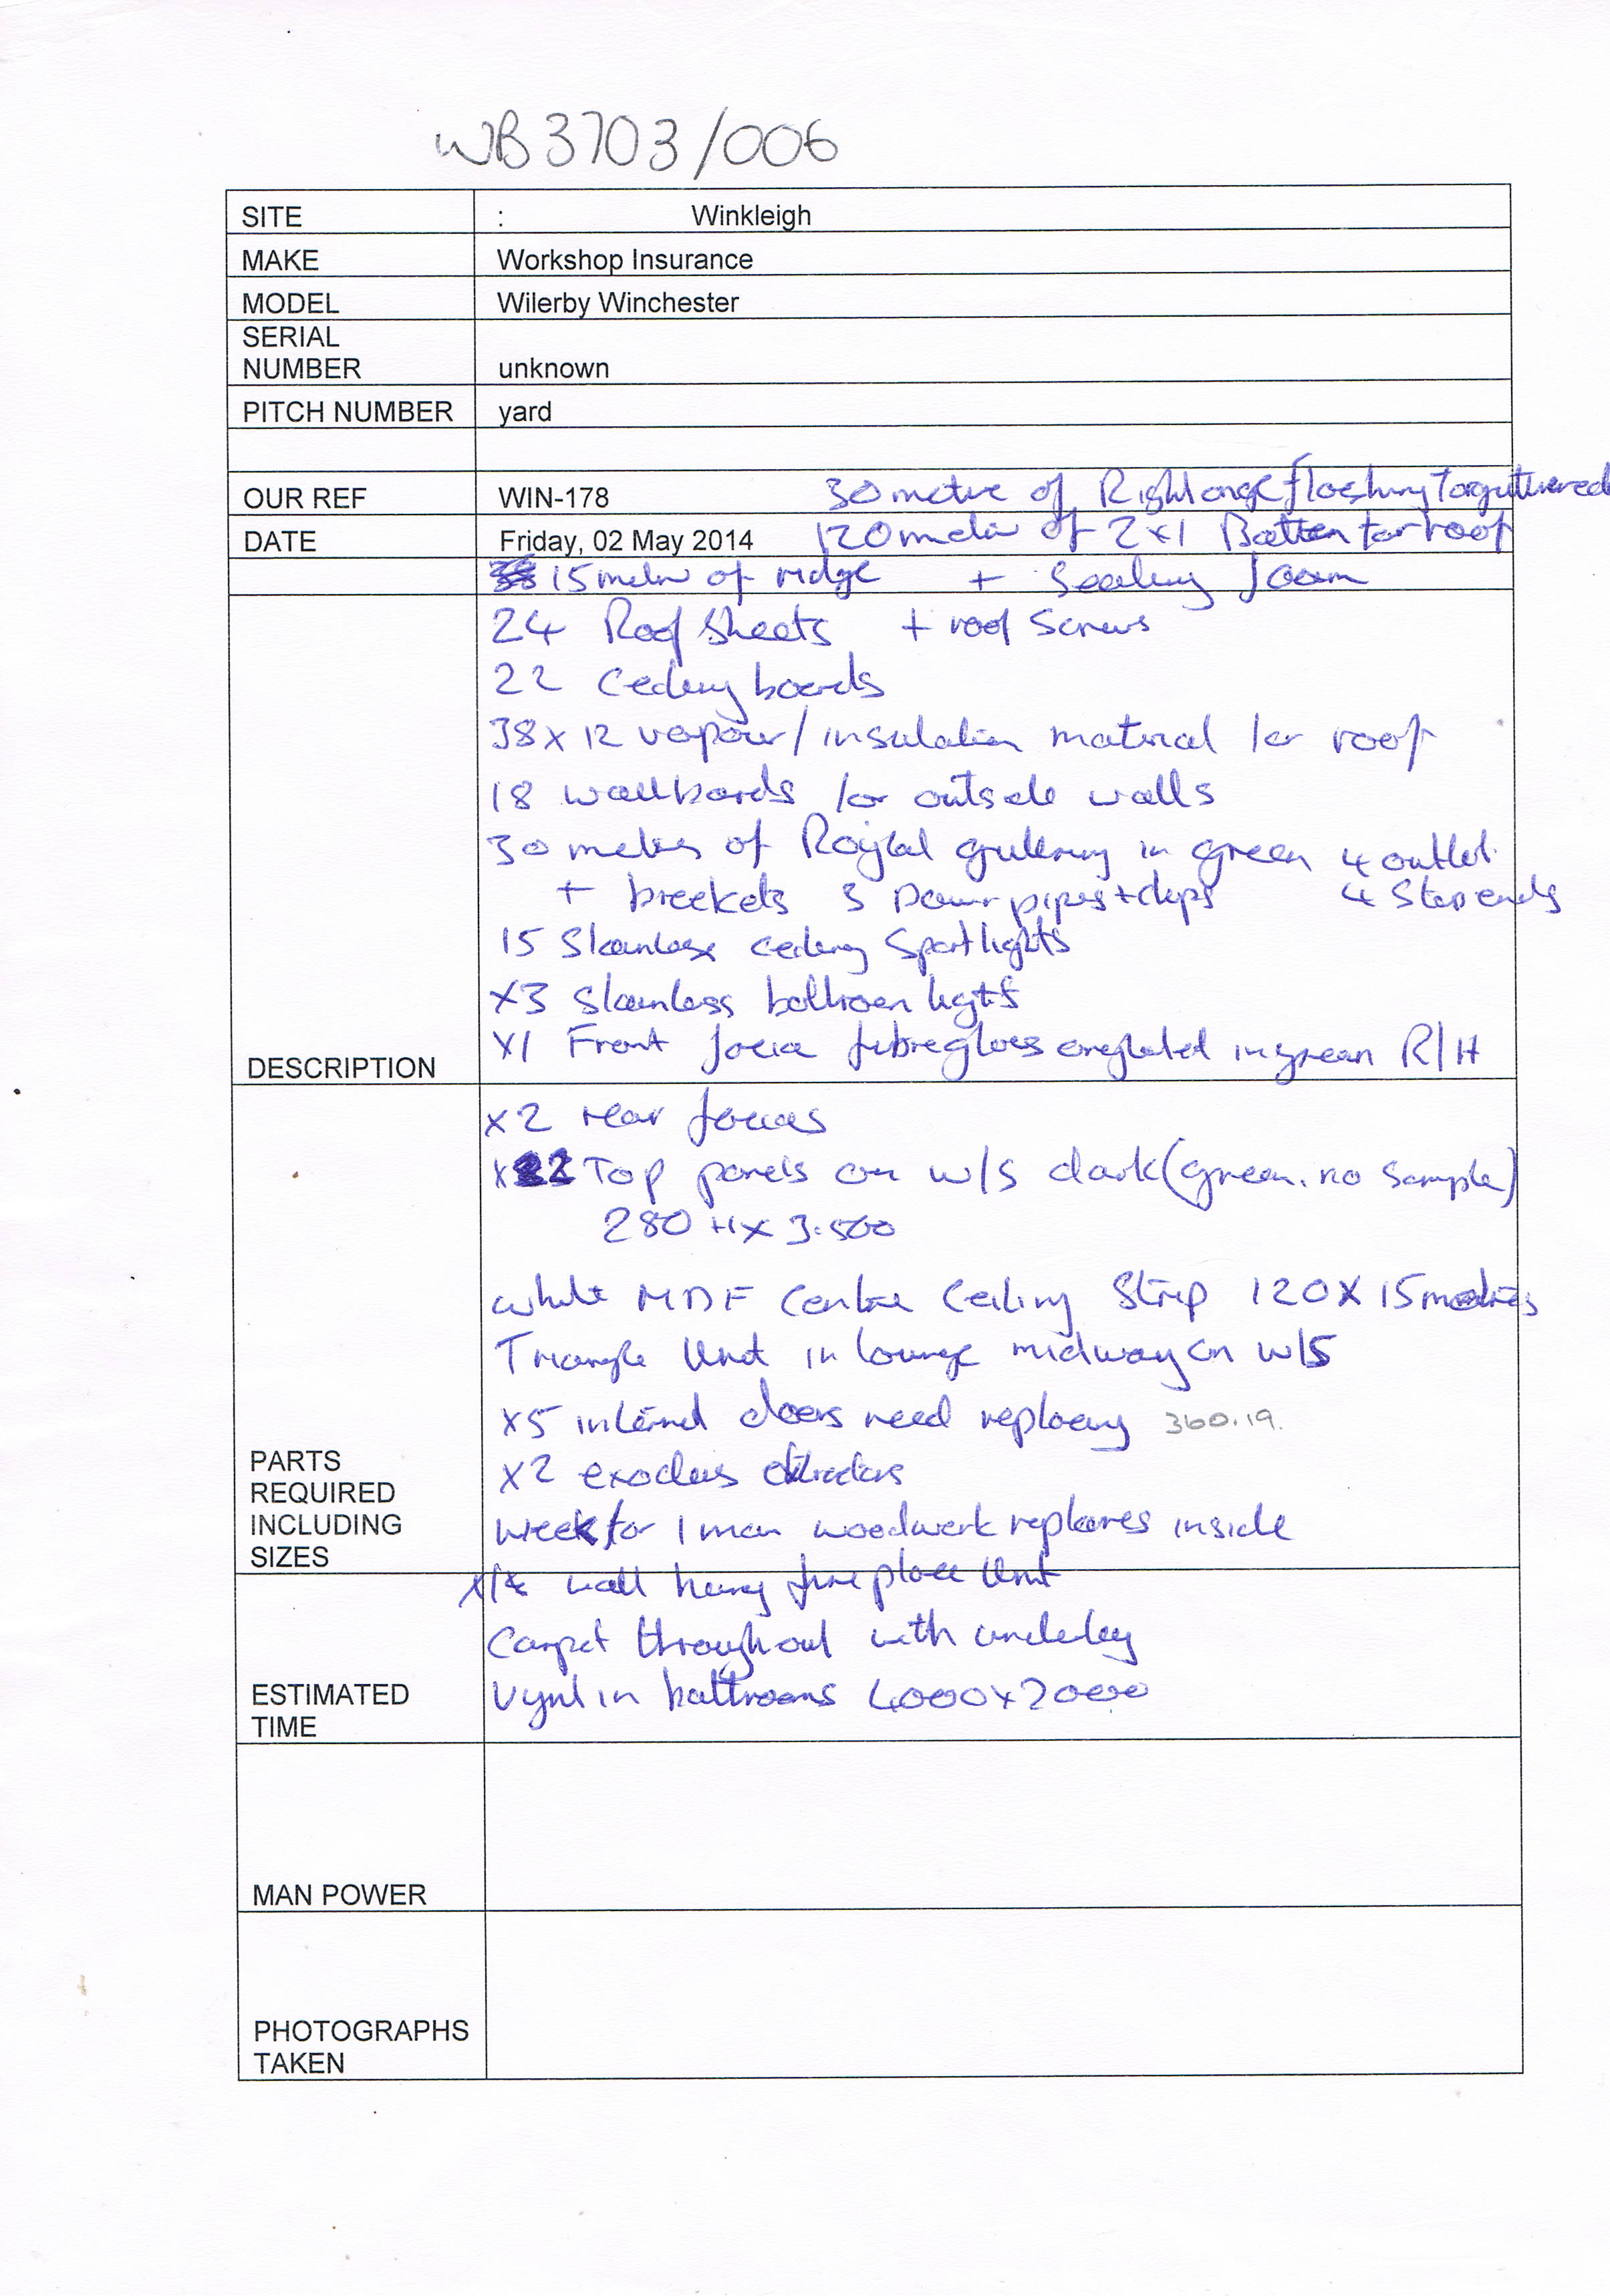 WB3703/006
SITE : Winkleigh
MAKE Workshop Insurance
MODEL Wilerby Winchester
SERIAL
NUMBER unknown
PITCH NUMBER yard
OUR REF WIN-178 30 metre of Rightangle flashing
DATE Friday, 02 May 2014 120 metre of 2x1 Batten for roof
15 metre of ridge + Sealing foam
24 Roof Sheets + roof Screws
22 Ceiling boards
38 x 12 vapour / insulation material for roof
18 wallboards for outside walls
30 metres of guttering in green 4 outlet
+ brackets 3 Down pipes + clips 4 Stop ends
15 Stainless ceiling Spotlights
x3 Stainless bathroom lights
DESCRIPTION x1 Front facia fibreglass in green R/H
x2 rear facias
Top panels on w/s dark (green. no Sample)
280 H x 3.500
white MDF Centre Ceiling Strip 120 x 15 metres
Triangle Unit in lounge midway on w/s
x5 internal doors need replacing 360.19.
PARTS
REQUIRED x2 exodus
INCLUDING week for 1 man woodwork inside
SIZES
wall hung fireplace Unit
Carpet throughout with underlay
ESTIMATED Vynl in bathrooms 4000x2000
TIME
MAN POWER
PHOTOGRAPHS
TAKEN